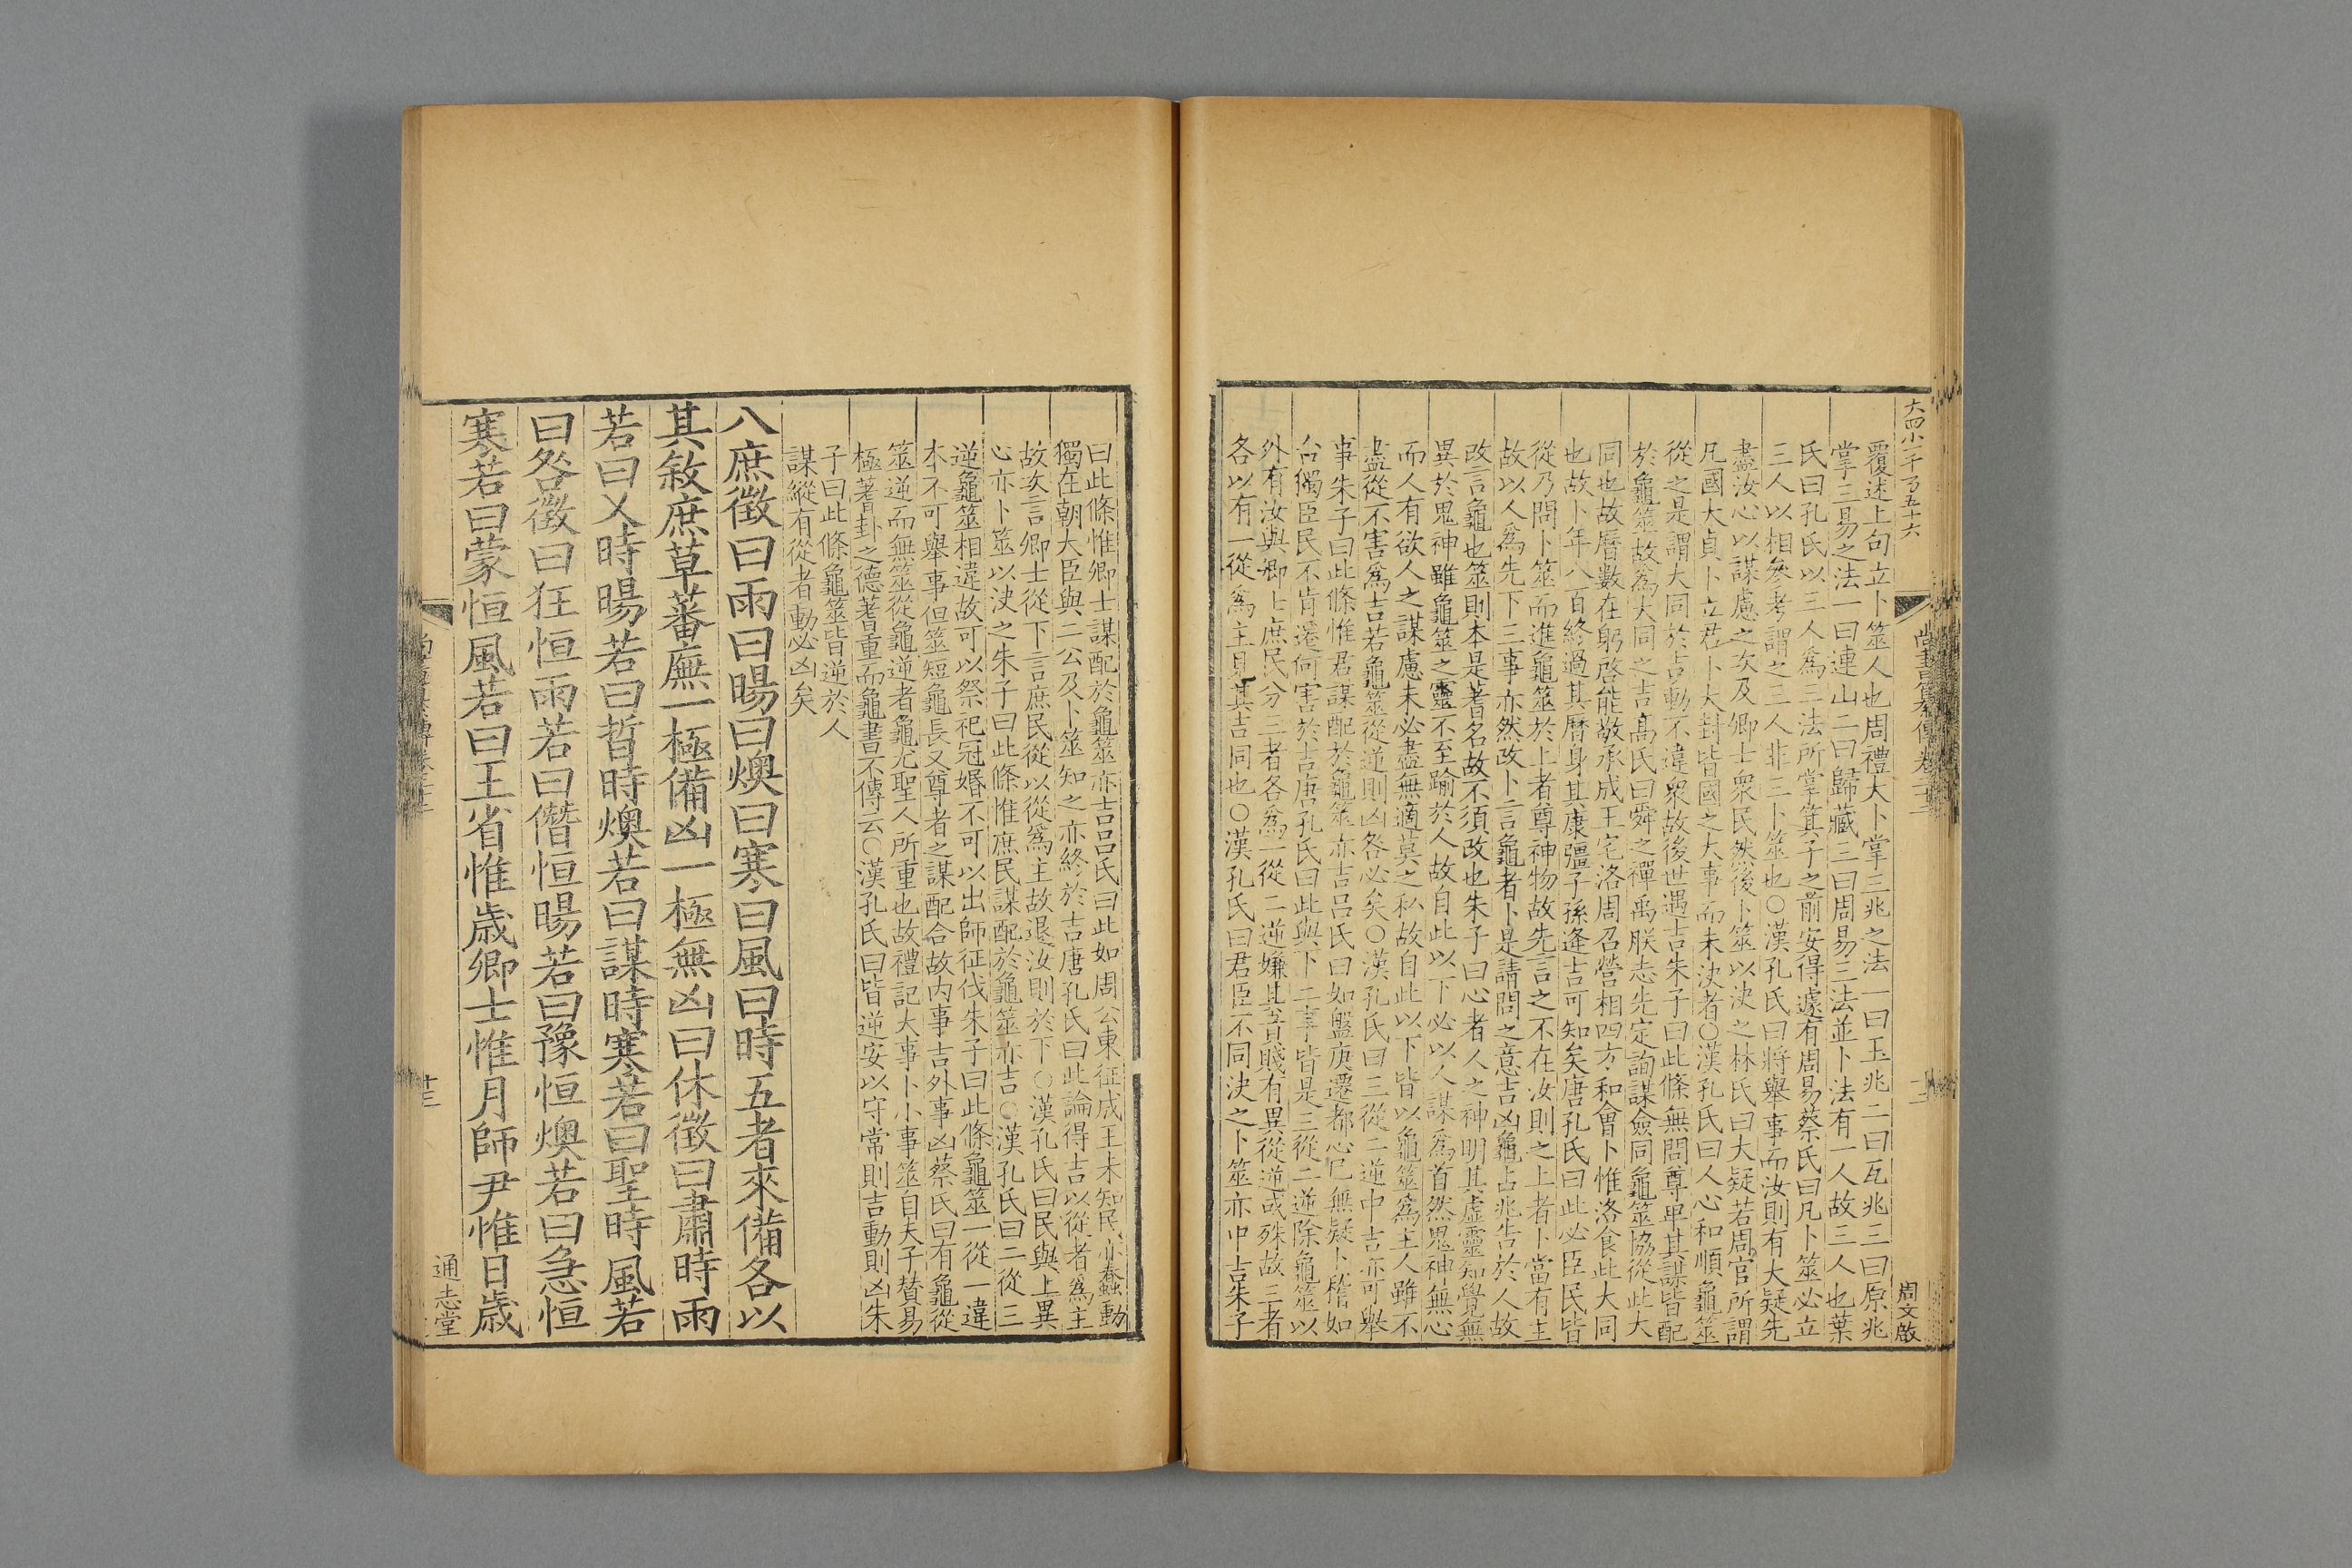 大四小千乃五十六
尚書纂傳卷
周文啟
覆述上句立卜筮人也周禮大卜掌三兆之法一曰玉兆二曰瓦兆三曰原兆
掌三易之法一曰連山二曰歸藏三曰周易三法並卜法有一人故三人也葉
氏曰孔氏以三人爲三法所掌箕子之前安得遽有周易蔡氏曰凡卜筮必立
三人以相參考謂之三人非三卜筮也○漢孔氏曰將舉事而汝則有大疑先
盡汝心以謀慮之次及卿士衆民然後卜筮以決之林氏曰大疑若周官所謂
凡國大貞卜立君卜大封皆國之大事而未決者○漢孔氏曰人心和順龜筮
從之是謂大同於吉動不違衆故後世遇吉朱子曰此條無問尊卑其謀皆配
於龜筮故爲大同之吉高氏曰舜之禪禹朕志先定詢謀僉同龜筮協從此大
同也故曆數在躬啓能敬承成王宅洛周召營相四方和會卜惟洛食此大同
也故卜年八百終過其曆身其康彊子孫逢吉可知矣唐孔氏曰此必臣民皆
從乃問卜筮而進龜筮於上者尊神物故先言之不在汝則之上者卜當有主
故以人爲先下三事亦然改卜言龜者卜是請問之意吉凶龜占兆告於人故
改言龜也筮則本是蓍名故不須改也朱子曰心者人之神明其虛靈知覺無
異於鬼神雖龜筮之靈不至踰於人故自此以下必以人謀爲首然鬼神無心
而人有欲人之謀慮未必盡無適莫之私故自此以下皆以龜筮爲主人雖不
盡從不害爲吉若龜筮從逆則凶咎必矣○漢孔氏曰三從二逆中吉亦可舉
事朱子曰此條惟君謀配於龜筮亦吉呂氏曰如盤庚遷都心已無疑卜稽如
台獨臣民不肯遷何害於吉唐孔氏曰此與下二事皆是三從二逆除龜筮以
外有汝與卿士庶民分三者各爲一從二逆嫌其貴賤有異從逆或殊故三者
各以有一從爲主見其吉同也○漢孔氏曰君臣不同決之卜筮亦中吉朱子
曰此條惟卿士謀配於龜筮亦吉呂氏曰此如周公東征成王未知民亦蠢動
獨在朝大臣與二公及卜筮知之亦終於吉唐孔氏曰此論得吉以從者爲主
故次言卿士從下言庶民從以從爲主故退汝則於下○漢孔氏曰民與上異
心亦卜筮以決之朱子曰此條惟庶民謀配於龜筮亦吉○漢孔氏曰二從三
逆龜筮相違故可以祭祀冠婚不可以出師征伐朱子曰此條龜筮一從一違
本不可舉事但筮短龜長又尊者之謀配合故內事吉外事凶蔡氏曰有龜從
筮逆而無筮從龜逆者龜尤聖人所重也故禮記大事卜小事筮自夫子贊易
極著蓍卦之德蓍重而龜書不傳云○漢孔氏曰皆逆安以守常則吉動則凶朱
子曰此條龜筮皆逆於人
謀縱有從者動必凶矣
八庶徵曰雨曰暘曰燠曰寒曰風曰時五者來備各以
其敘庶草蕃廡一極備凶一極無凶曰休徵曰肅時雨
若曰乂時暘若曰晢時燠若曰謀時寒若曰聖時風若
曰咎徵曰狂恒雨若曰僭恒暘若曰豫恒燠若曰急恒
寒若曰蒙恒風若曰王省惟歲卿士惟月師尹惟日歲
通志堂